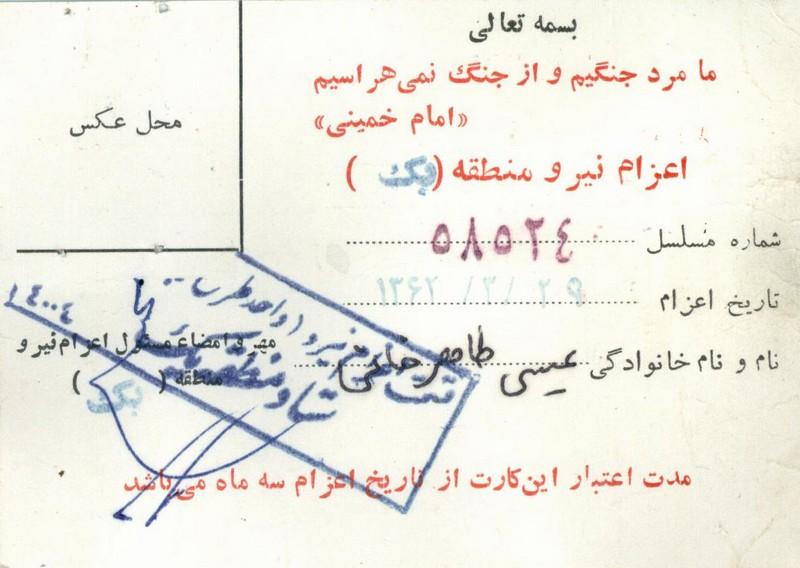 بسمه تعالی
ما مرد جنگیم و از جنگ نمی‌هراسیم
«امام خمینی»
محل عکس
اعزام نیرو منطقه (یک)
شماره مسلسل ۵۸۵۲۴
تاریخ اعزام ۱۳۶۲/۳/۲۹
نام و نام خانوادگی عیسی
مهر و امضاء مسئول اعزام نیرو
منطقه (یک)
مدت اعتبار این‌کارت از تاریخ اعزام سه ماه می‌باشد